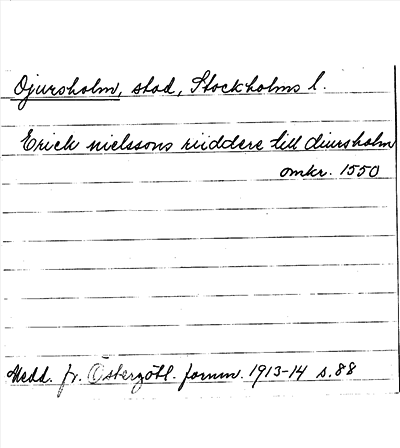 Djursholm, stad, Stockholms l.
Erick nielssons riiddere till diursholm
omkr. 1550
Medd. fr. Östergötl. fornm. 1913-14 s. 88